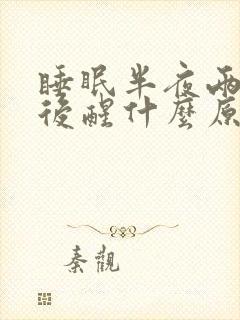 睡眠半夜兩
後醒什麼原
秦觀